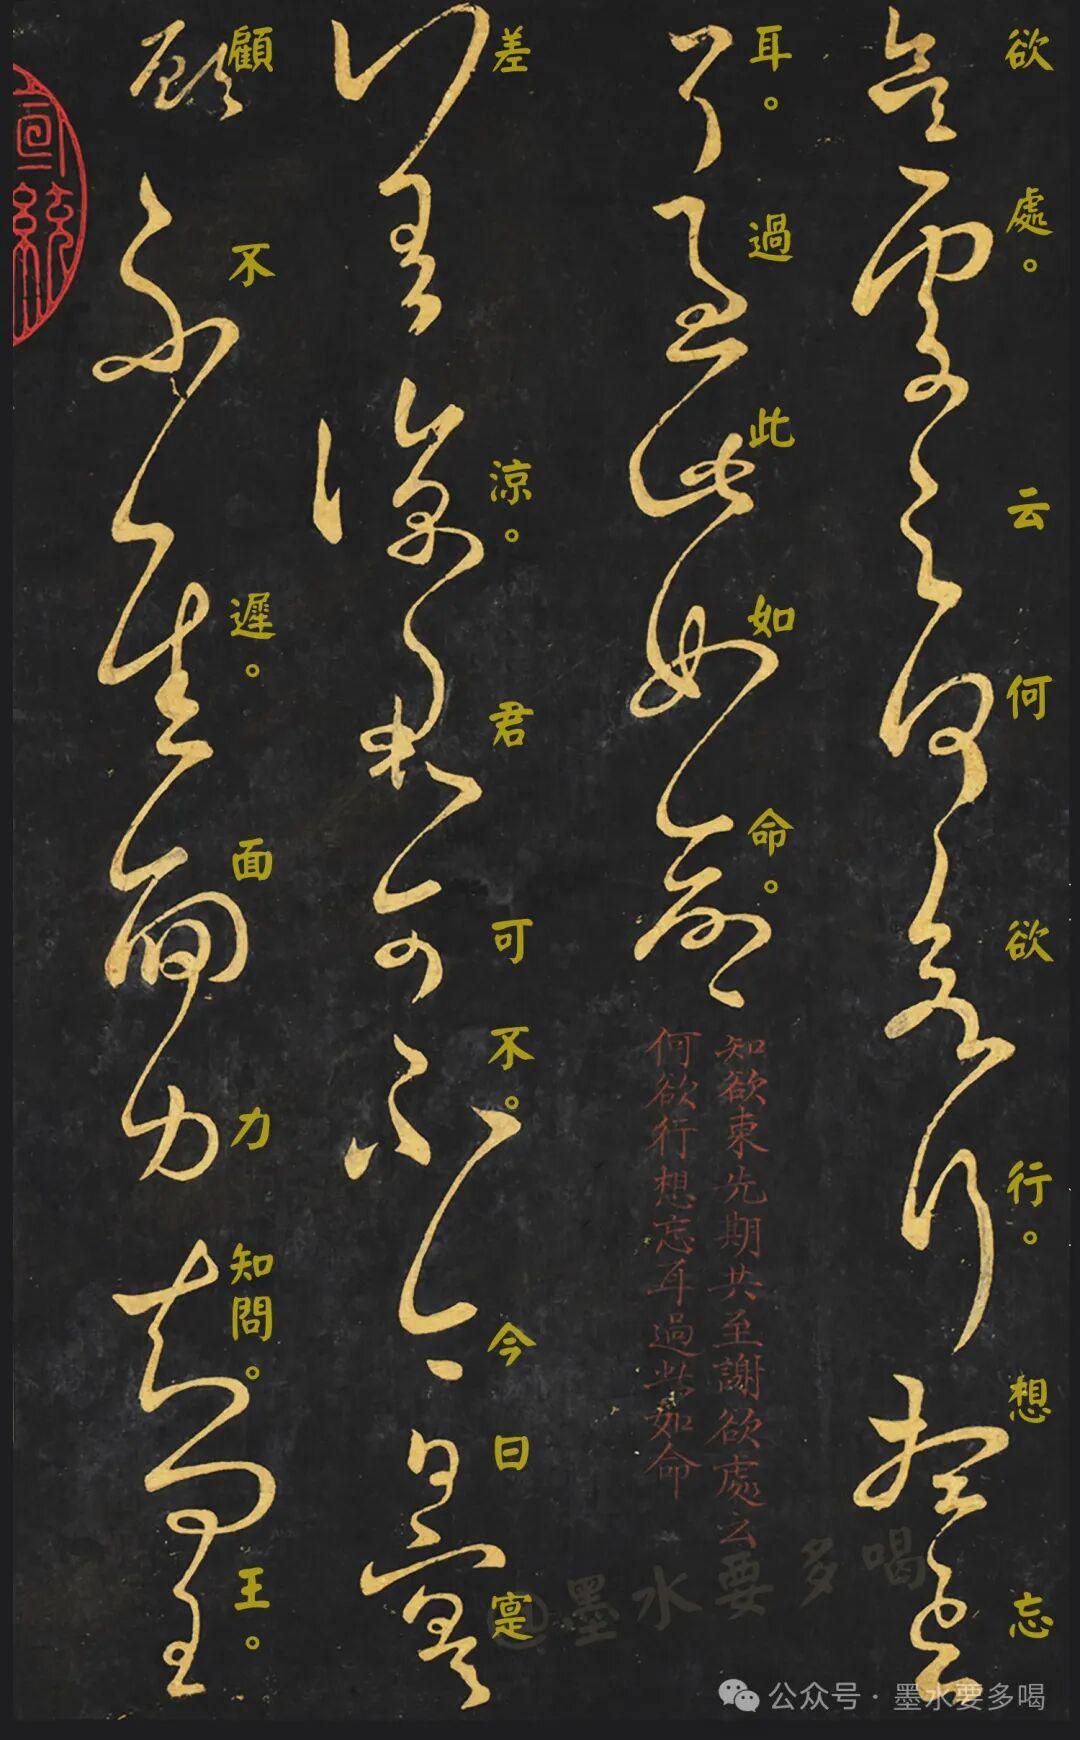 欲處。云何欲行。想忘
耳。過此如命。
知欲東先期共至謝欲處云
何欲行想忘耳過此如命
差涼。君可不。今日寔
顧不遲。面力知問。王。
宣統
@墨水要多喝
公众号 · 墨水要多喝